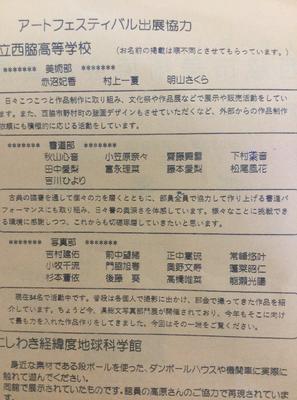 アートフェスティバル出展協力
立西脇高等学校 (お名前の掲載は順不同とさせてもらっています。)
******* 美術部 *******
赤沼妃香 村上一夏 明山さくら
日々こつこつと作品制作に取り組み、文化祭や作品展などで展示や販売活動をしてい
ます。また、西脇市野村町の陸画デザインもさせていただくなど、外部からの作品制作
依頼にも積極的に応じる活動をしています。
******* 書道部 *******
秋山心音 小笠原奈々 齋藤 下村 音
田中愛梨 富永理菜 藤本愛梨 松尾風花
吉川ひより
古典の臨書を通して個々の力を磨くとともに、部員全員で協力して作り上げる書道パ
フォーマンスにも取り組み、日々書の奥深さを体感しています。様々なことに挑戦できる
環境に感謝しつつ、これからも切磋琢磨していきたいと思います。
******* 写真部 *******
吉村建佑 前中望緒 正中 琉 常峰悠叶
小牧千流 門脇旭春 奥野文寿 蓬莱昭仁
杉本蒼依 後藤葵 高橋唯菜 能瀬光陽
現在34名で活動中です。普段は各個人で撮影に出かけ、部会で撮ってきた作品を紹
介しています。ちょうど今、県総文写真部門展が開催されており、今年もそこに向け
て最も力を入れた作品作りをしてきました。今回はその一部をご覧ください。
にしわき経緯度地球科学館
身近な素材である段ボールを使った、ダンボールハウスや機関車に実際に
触れて遊んでください。
同館で展示されていたものです。館員の高原さんのご協力で再現されていま
す。